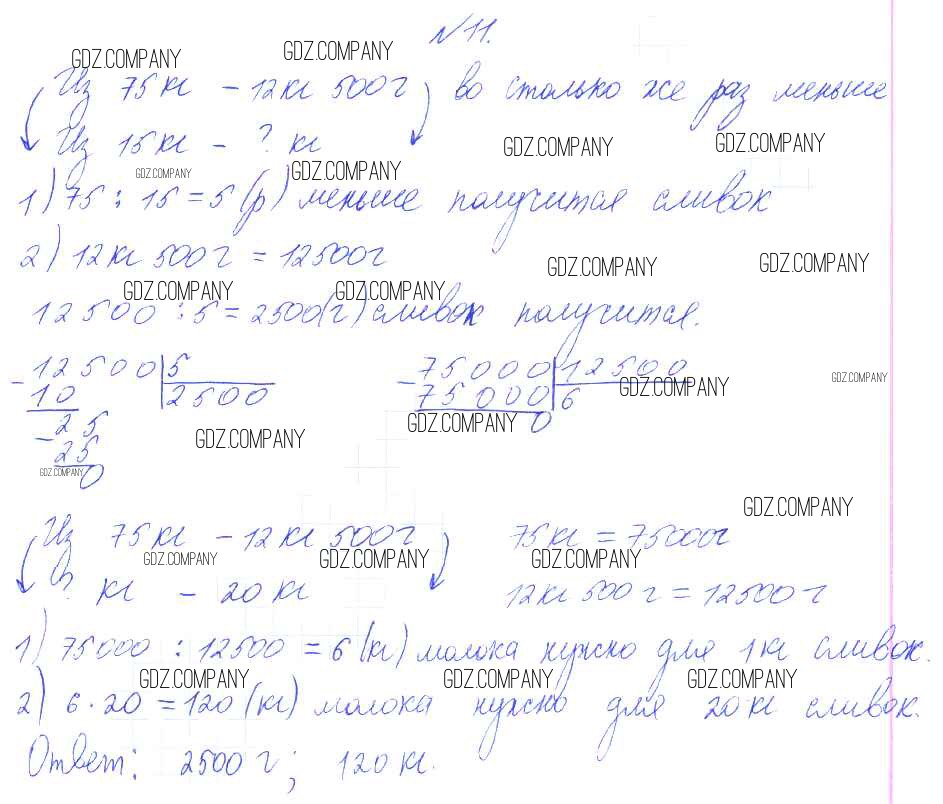 №11.
GDZ.COMPANY GDZ.COMPANY
Из 75 кг – 12 кг 500 г во столько же раз меньше
Из 15 кг – ? кг
GDZ.COMPANY GDZ.COMPANY
GDZ.COMPANY GDZ.COMPANY
1) 75 : 15 = 5 (р) меньше получится сливок
2) 12 кг 500 г = 12500 г
GDZ.COMPANY GDZ.COMPANY
GDZ.COMPANY GDZ.COMPANY
12500 : 5 = 2500 (г) сливок получится.
– 12500 | 5 – 75000 | 12500
10 | 2500 75000 | 6
GDZ.COMPANY GDZ.COMPANY
– 25 0
GDZ.COMPANY GDZ.COMPANY
25
GDZ.COMPANY
0
GDZ.COMPANY
Из 75 кг – 12 кг 500 г 75 кг = 75000 г
GDZ.COMPANY GDZ.COMPANY GDZ.COMPANY
? кг – 20 кг 12 кг 500 г = 12500 г
1) 75000 : 12500 = 6 (кг) молока нужно для 1 кг сливок.
GDZ.COMPANY GDZ.COMPANY GDZ.COMPANY
2) 6 · 20 = 120 (кг) молока нужно для 20 кг сливок.
Ответ: 2500 г; 120 кг.